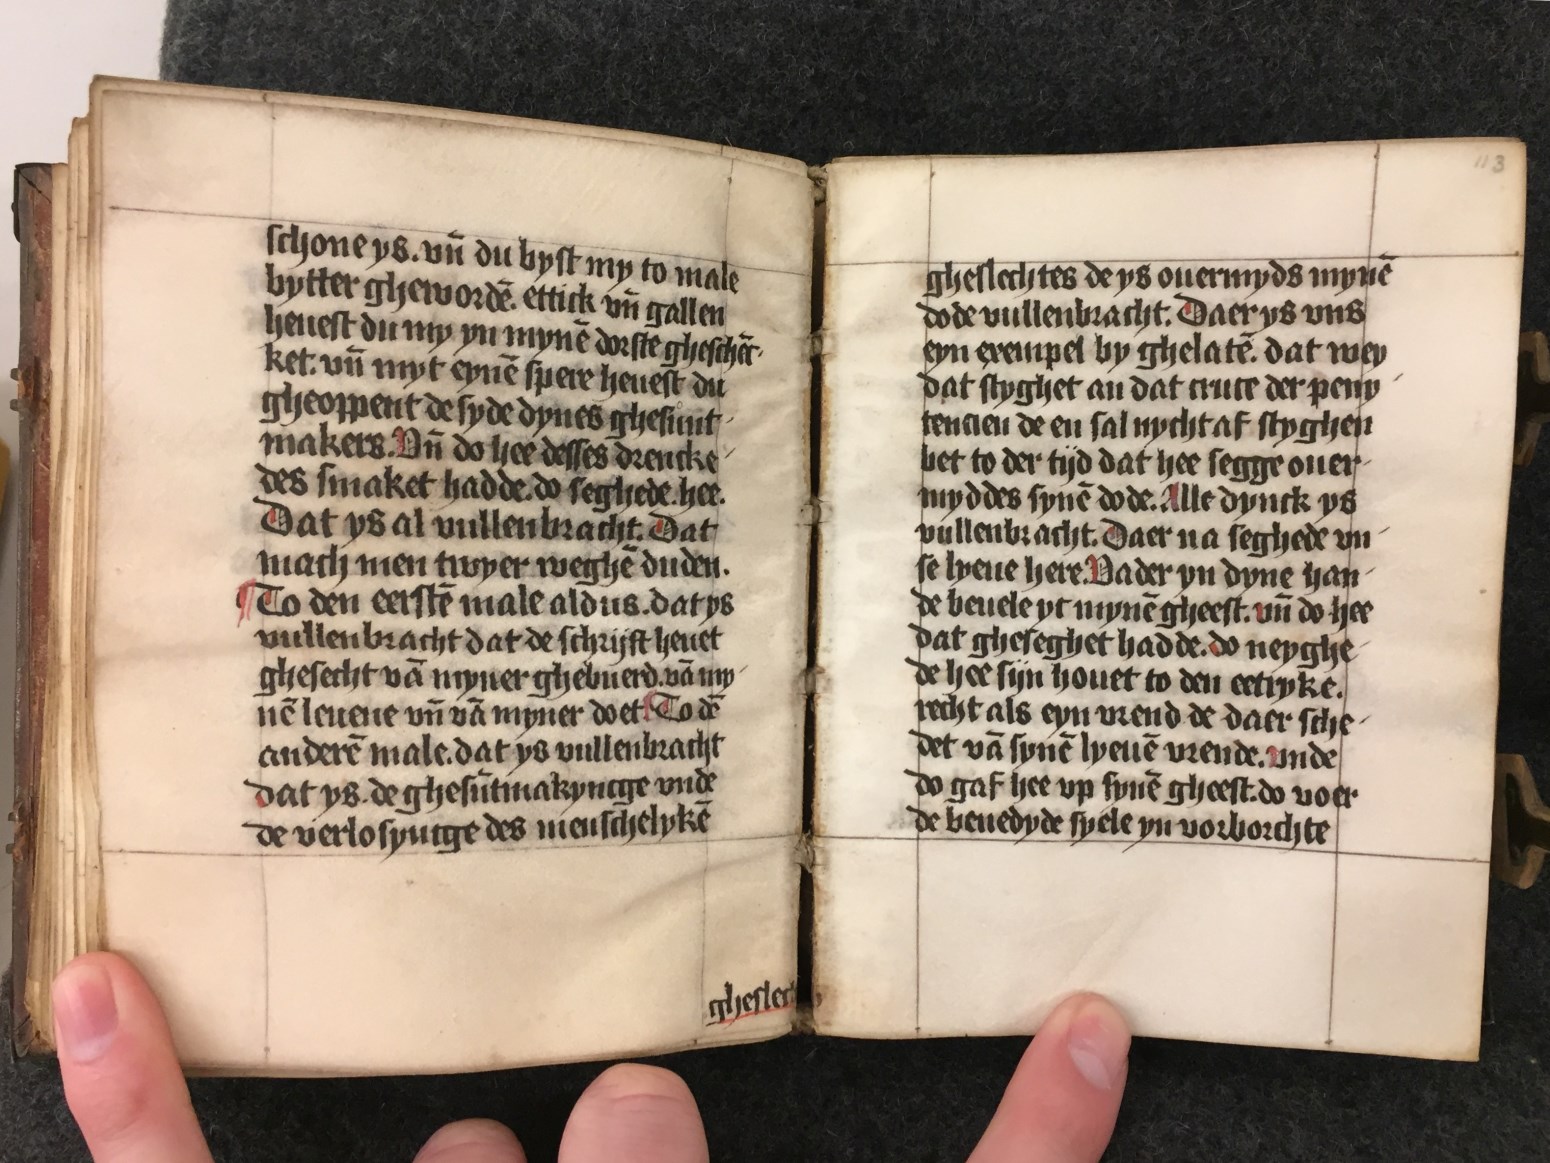 schone ys. vn̄ du byst my to male
bytter ghewordē. ettick vn̄ gallen
heuest du my yn mynē dorste gheschēt-
ket. vn̄ myt eynē spere heuest du
gheoppent de syde dynes ghesunt-
makers. Vn̄ do hee desses drencke-
des smaket hadde. do seghede. hee.
Dat ys al vullenbracht. Dat
mach men twyer weghē duden.
¶ To den eerstē male aldus. dat ys
vullenbracht dat de schrijft heuet
ghesecht vā myner ghebuerd. vā my-
nē leuene vn̄ vā myner doet. To dē
anderē male. dat ys vullenbracht
dat ys. de ghesūtmakyncge vnde
de verlosyncge des menschelykē
gheslech
113
gheslechtes de ys ouermyds mynē
dode vullenbracht. Daer ys vns
eyn exempel by ghelatē. dat wey
dat styghet an dat cruce der peny-
tencien de en sal nycht af styghen
bet to der tijd dat hee segge ouer-
myddes synē dode. Alle dynck ys
vullenbracht. Daer na seghede vn-
se lyeue here. Vader yn dyne han-
de beuele yt mynē gheest. vn̄ do hee
dat gheseghet hadde. do neyghe-
de hee sijn houet to den eetryke.
recht als eyn vrend de daer sche-
det vā synē lyeuē vrende. vnde
do gaf hee vp synē gheest. do voer
de benedyde syele yn vorborchte